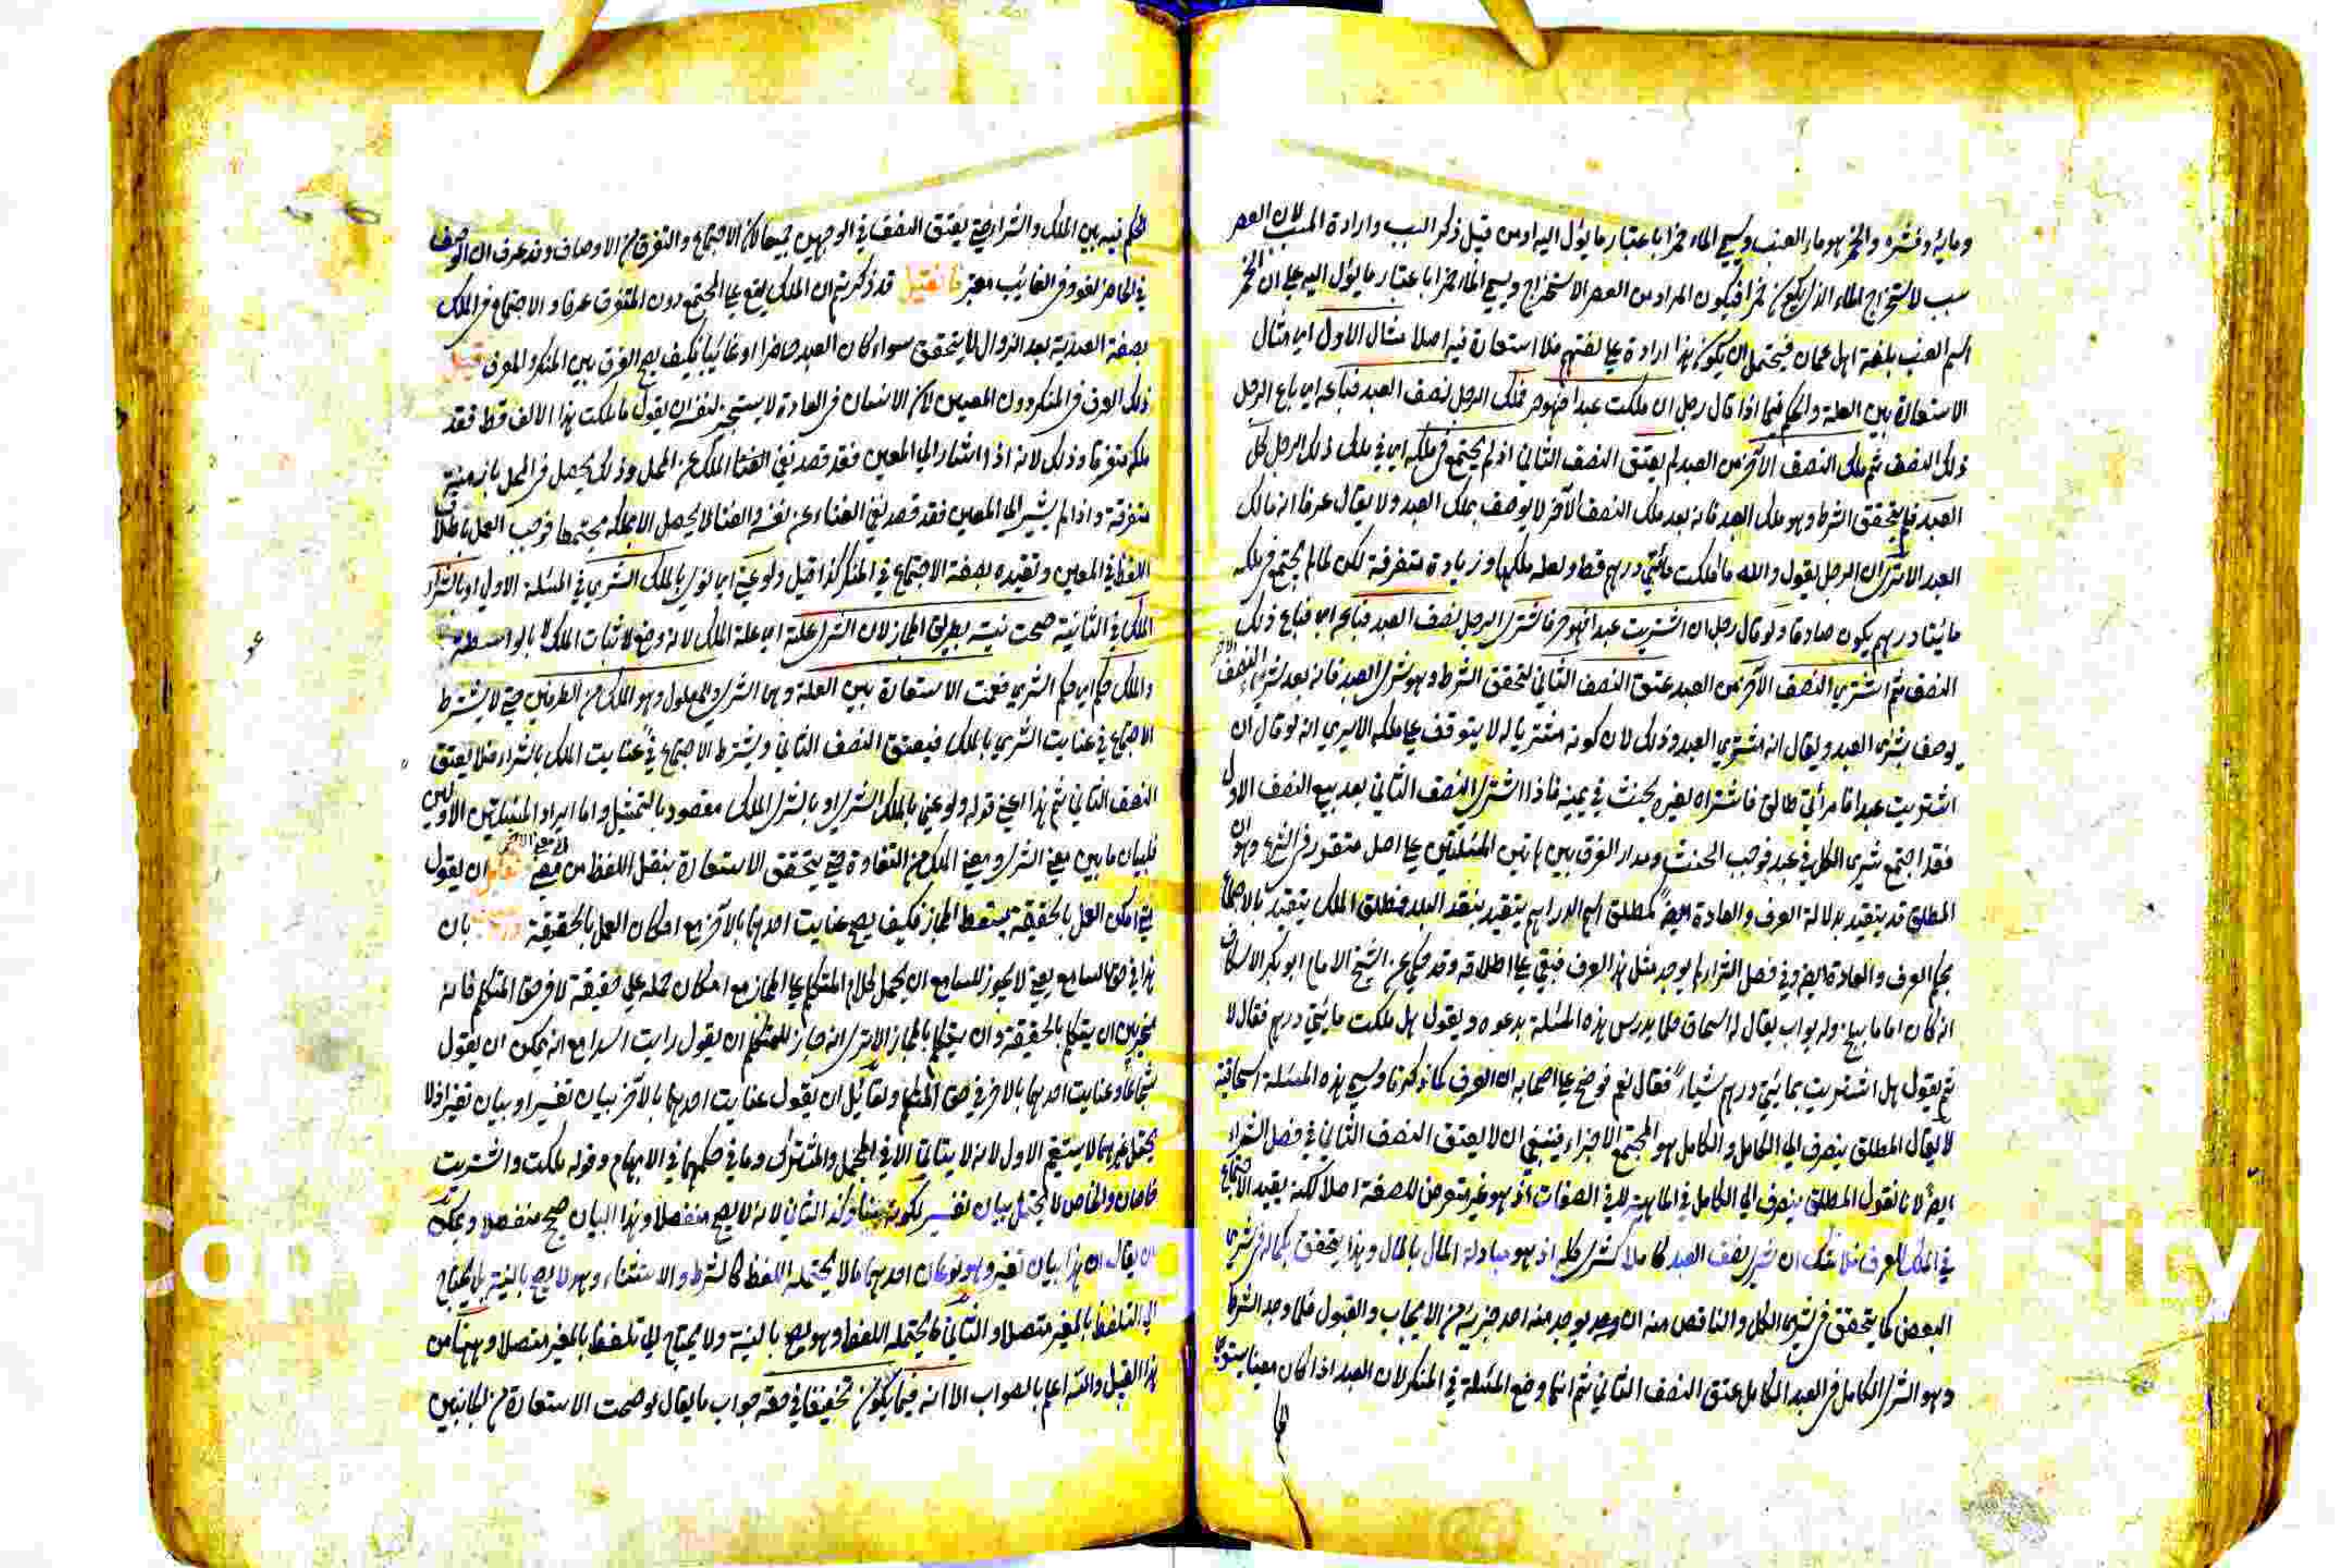 ومائه وقشره والخمر هو ماء العنب ويسمى الماء خمرا باعتبار ما يؤل اليه او من قبيل ذكر السبب وارادة المسبب لان العصر
سبب لاستخراج الماء الذي يكون خمرا فيكون المراد من العصر الاستخراج ويسمى الماء خمرا باعتبار ما يؤل اليه على ان الخمر
اسم العنب بلغة اهل عمان فيحتمل ان يكون هذا ارادة على لغتهم فلا استعارة فيه اصلا مثال الاول اى مثال
الاستعارة بين العلة والحكم فيما اذا قال رجل ان ملكت عبدا فهو حر فملك الرجل نصف العبد فباعه اى باع الرجل
ذلك النصف ثم ملك النصف الآخر من العبد لم يعتق النصف الثاني اذ لم يجتمع في ملكه اى في ملك ذلك الرجل كل
العبد فلم يتحقق الشرط وهو ملك العبد فانه بعد ملك النصف الآخر لا يوصف بملك العبد ولا يقال عرفا انه مالك
العبد الا ترى ان الرجل يقول والله ما ملكت مائتي درهم قط ولعله ملكها وزيادة متفرقة لكن لما لم يجتمع في ملكه
مايتا درهم يكون صادقا ولو قال رجل ان اشتريت عبدا فهو حر فاشترى الرجل نصف العبد فباعه اى فباع ذلك
النصف ثم اشترى النصف الآخر من العبد عتق النصف الثاني لتحقق الشرط وهو شرى العبد فانه بعد شرى النصف الآخر
يوصف بشرى العبد ويقال انه مشترى العبد وذلك لان كونه مشتريا له لا يتوقف على ملكه الا يرى انه لو قال ان
اشتريت عبدا فامرأتي طالق فاشتراه لغيره يحنث في يمينه فاذا اشترى النصف الثاني بعد بيع النصف الاول
فقد اجتمع شرى الكل في عبد فوجب الحنث ومدار الفرق بين هاتين المسئلتين على اصل متقرر في الشرع وهو ان
المطلق قد يتقيد بدلالة العرف والعادة ايضا كمطلق اسم الدراهم يتقيد بنقد البلد فمطلق الملك يتقيد بالاجتماع
بحكم العرف والعادة ايضا وفي فصل الشراء لم يوجد مثل هذا العرف فبقي على اطلاقه وقد حكى عن الشيخ الامام ابو بكر الاسكاف
انه كان اماما ببلخ وله بواب يقال له اسحاق فلما يدرس هذه المسئلة يدعوه ويقول هل ملكت مايتي درهم فقال لا
ثم يقول هل اشتريت بمايتي درهم شياء فقال نعم فوضح على اصحابه ان العرف كما ذكرنا ويسمى هذه المسئلة اسحاقية
لا يقال المطلق ينصرف الى الكامل والكامل هو المجتمع الاجزاء فينبغي ان لا يعتق النصف الثاني في فصل الشراء
ايضا لانا نقول المطلق ينصرف الى الكامل في الماهية لا في الصفات اذ هو غير متعرض للصفة اصلا لكنه يقيد الاجتماع
في الملك للعرف فلا شك ان شرى نصف العبد كاملا كشرى كله اذ هو مبادلة المال بالمال وهذا يتحقق بكماله في شرى
البعض كما يتحقق في شرى الكل والناقص منه ان يوجد منه احد جزئيه من الايجاب والقبول فلما وجد الشرط
وهو الشرى الكامل في العبد الكامل عتق النصف الثاني ثم انما وضع المسئلة في المنكر لان العبد اذا كان معينا يستوى
الحكم فيه بين الملك والشرا حتى يعتق النصف في الوجهين جميعا لان الاجتماع والتفرق من الاوصاف وقد عرف ان الوصف
في الحاضر لغو وفي الغائب معتبر فان قيل قد ذكرتم ان الملك يقع على المجتمع دون المتفرق عرفا والاجتماع في الملك
بصفة العبدية بعد الزوال لا يتحقق سواء كان العبد حاضرا او غائبا فكيف يصح الفرق بين المنكر والمعرف قيل
ذلك العرف في المنكر دون المعين لان الانسان في العادة لا يستجيز لنفسه ان يقول ما ملكت هذا الالف قط فقد
ملكه متفرقا وذلك لانه اذا اشار الى المعين فقد قصد نفي الملك عن المحل وذلك يحصل في المحل بازمنة
متفرقة واذا لم يشير الى المعين فقد قصد نفي الغناء عن نفسه والغنا لا يحصل الا بملكه مجتمعا فوجب العمل باطلاق
اللفظ في المعين وتقيده بصفة الاجتماع في المنكر كذا قيل ولو عنى اى لو نوى بالملك الشرى في المسئلة الاولى او بالشراء
الملك في الثانية صحت نيته بطريق المجاز لان الشرى علة اى علة الملك لانه وضع لاثبات الملك بالواسطة
والملك حكم اى حكم الشرى فعمت الاستعارة بين العلة وهى الشرى والمعلول وهو الملك من الطرفين حتى لا يشترط
الاجتماع في عنايت الشرى بالملك فيعتق النصف الثاني ويشترط الاجتماع في عنايت الملك بالشراء فلا يعتق
النصف الثاني ثم هذا اعني قوله ولو عنى بالملك الشرى او بالشرى الملك مقصود بالتمثيل واما ايراد المسئلتين الاوليين
فلبيان ما بين معنى الشرى ومعنى الملك من التفاوة حتى يتحقق الاستعارة بنقل اللفظ من معنى الى معنى الآخر ان يقول
متى امكن العمل بالحقيقة يسقط المجاز فكيف يصح عنايت احدهما بالآخر مع امكان العمل بالحقيقة بان
هذا في حق السامع يعني لا يجوز للسامع ان يحمل كلام المتكلم على المجاز مع امكان حمله على حقيقة لا في حق المتكلم فانه
مخير بين ان يتكلم بالحقيقة وان يتكلم بالمجاز الا ترى انه جاز للمتكلم ان يقول رايت اسدا مع انه يمكن ان يقول
شجاعا وعنايت احدهما بالآخر في حق المتكلم ولقائل ان يقول عنايت احدهما بالآخر بيان تفسير او بيان تغير اذ لا
يحتمل غيرهما لا يستقيم الاول لانه لا يتاتى الا في المجمل والمشترك وما في حكمهما في الابهام وقوله ملكت واشتريت
خاصان والخاص لا يحتمل بيان تفسير لكونه بينا وكذا الثاني لانه لا يصح منفصلا وهذا البيان صح منفصلا ويمكن
ان يقال ان هذا بيان تغير وهو نوعان احدهما ما لا يحتمله اللفظ كالشرط والاستثناء وهو لا يصح بالنية بل يحتاج
الى التلفظ بالمغير متصلا والثاني ما يحتمله اللفظ وهو يصح بالنية ولا يحتاج الى تلفظ بالمغير متصلا وههنا من
هذا القبيل والله اعلم بالصواب الا انه فيما يكون تخفيفا في حقه جواب ما يقال لو صحت الاستعارة من الجانبين